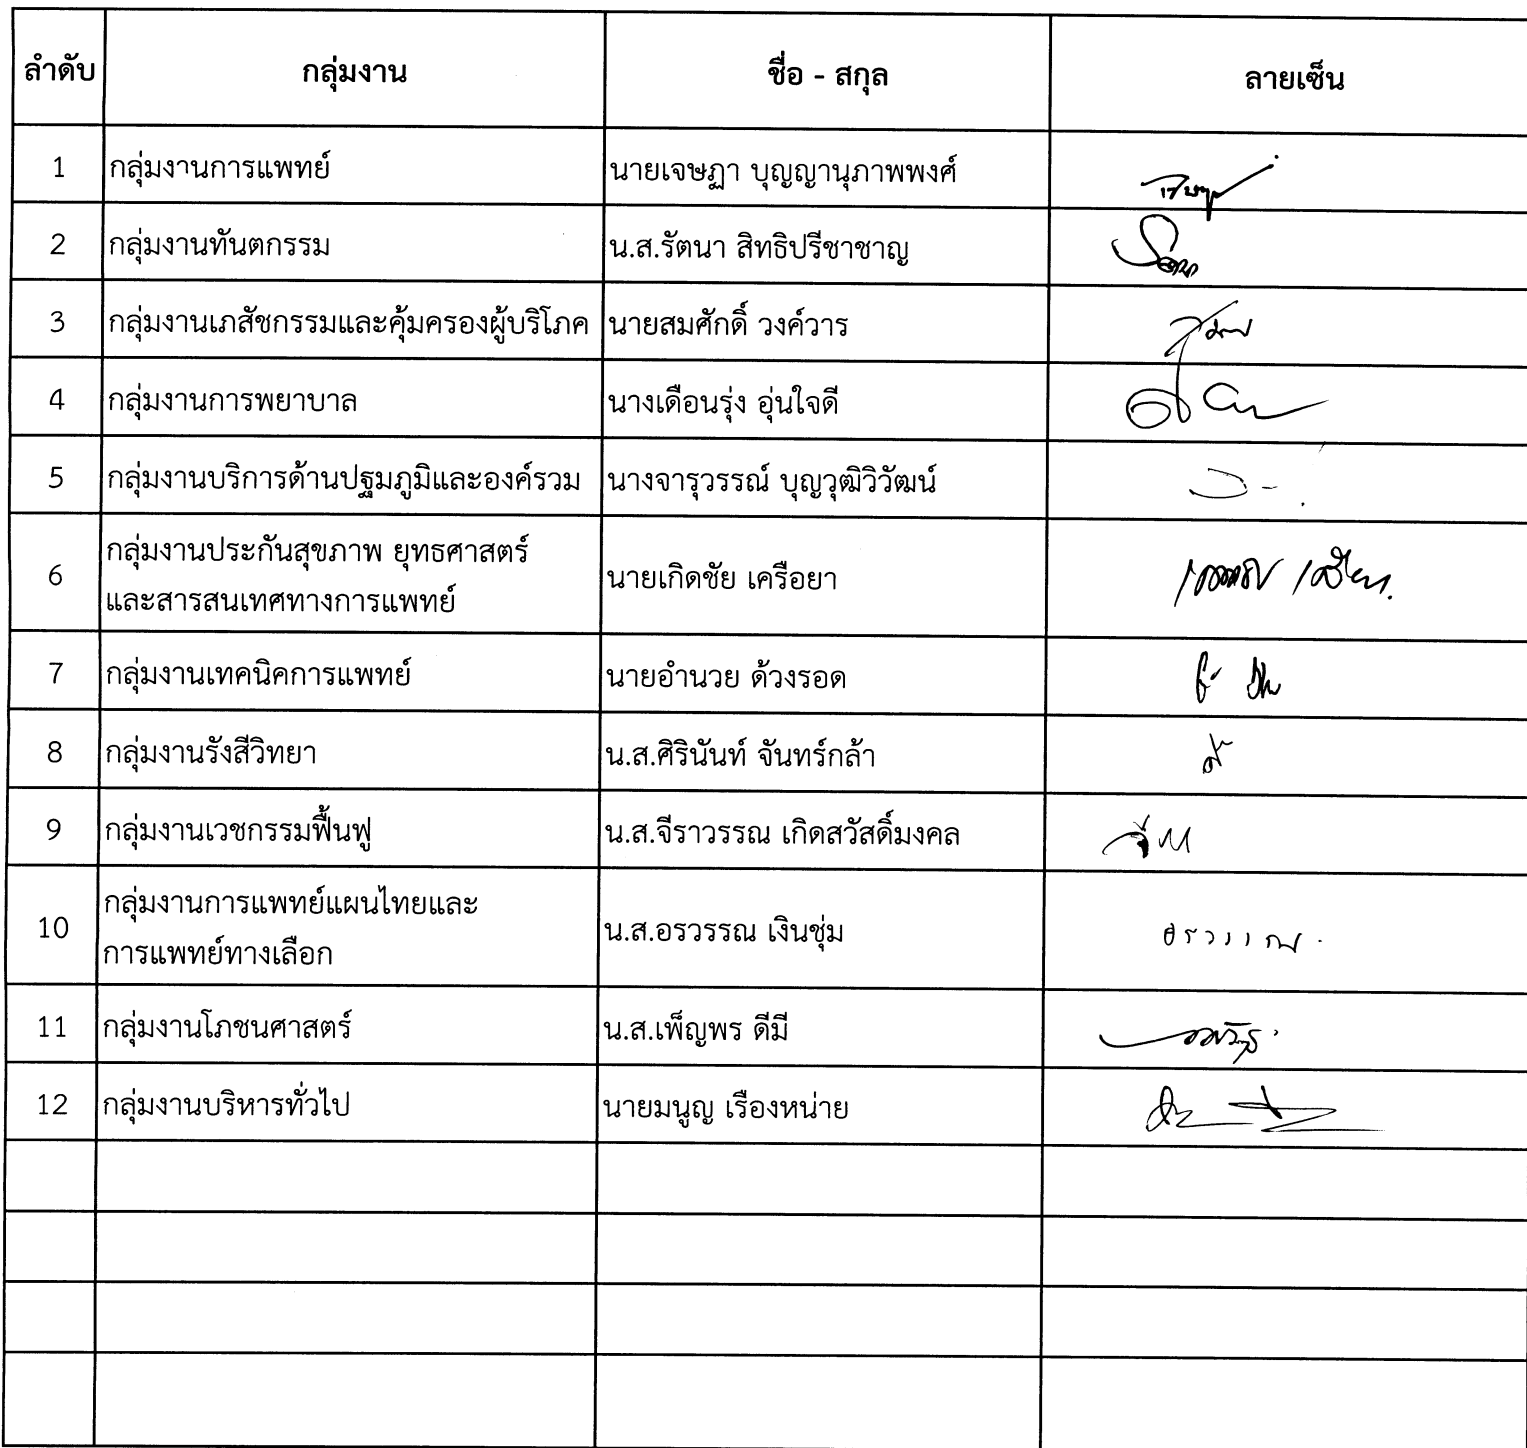 ลำดับ กลุ่มงาน ชื่อ - สกุล ลายเซ็น
1 กลุ่มงานการแพทย์ นายเจษฏา บุญญานุภาพพงศ์
2 กลุ่มงานทันตกรรม น.ส.รัตนา สิทธิปรีชาชาญ
3 กลุ่มงานเภสัชกรรมและคุ้มครองผู้บริโภค นายสมศักดิ์ วงค์วาร
4 กลุ่มงานการพยาบาล นางเดือนรุ่ง อุ่นใจดี
5 กลุ่มงานบริการด้านปฐมภูมิและองค์รวม นางจารุวรรณ์ บุญวุฒิวิวัฒน์
กลุ่มงานประกันสุขภาพ ยุทธศาสตร์
6 นายเกิดชัย เครือยา
และสารสนเทศทางการแพทย์
7 กลุ่มงานเทคนิคการแพทย์ นายอำนวย ด้วงรอด
8 กลุ่มงานรังสีวิทยา น.ส.ศิรินันท์ จันทร์กล้า
9 กลุ่มงานเวชกรรมฟื้นฟู น.ส.จีราวรรณ เกิดสวัสดิ์มงคล
กลุ่มงานการแพทย์แผนไทยและ
10 น.ส.อรวรรณ เงินชุ่ม อรวรรณ
การแพทย์ทางเลือก
11 กลุ่มงานโภชนศาสตร์ น.ส.เพ็ญพร ดีมี
12 กลุ่มงานบริหารทั่วไป นายมนูญ เรืองหน่าย